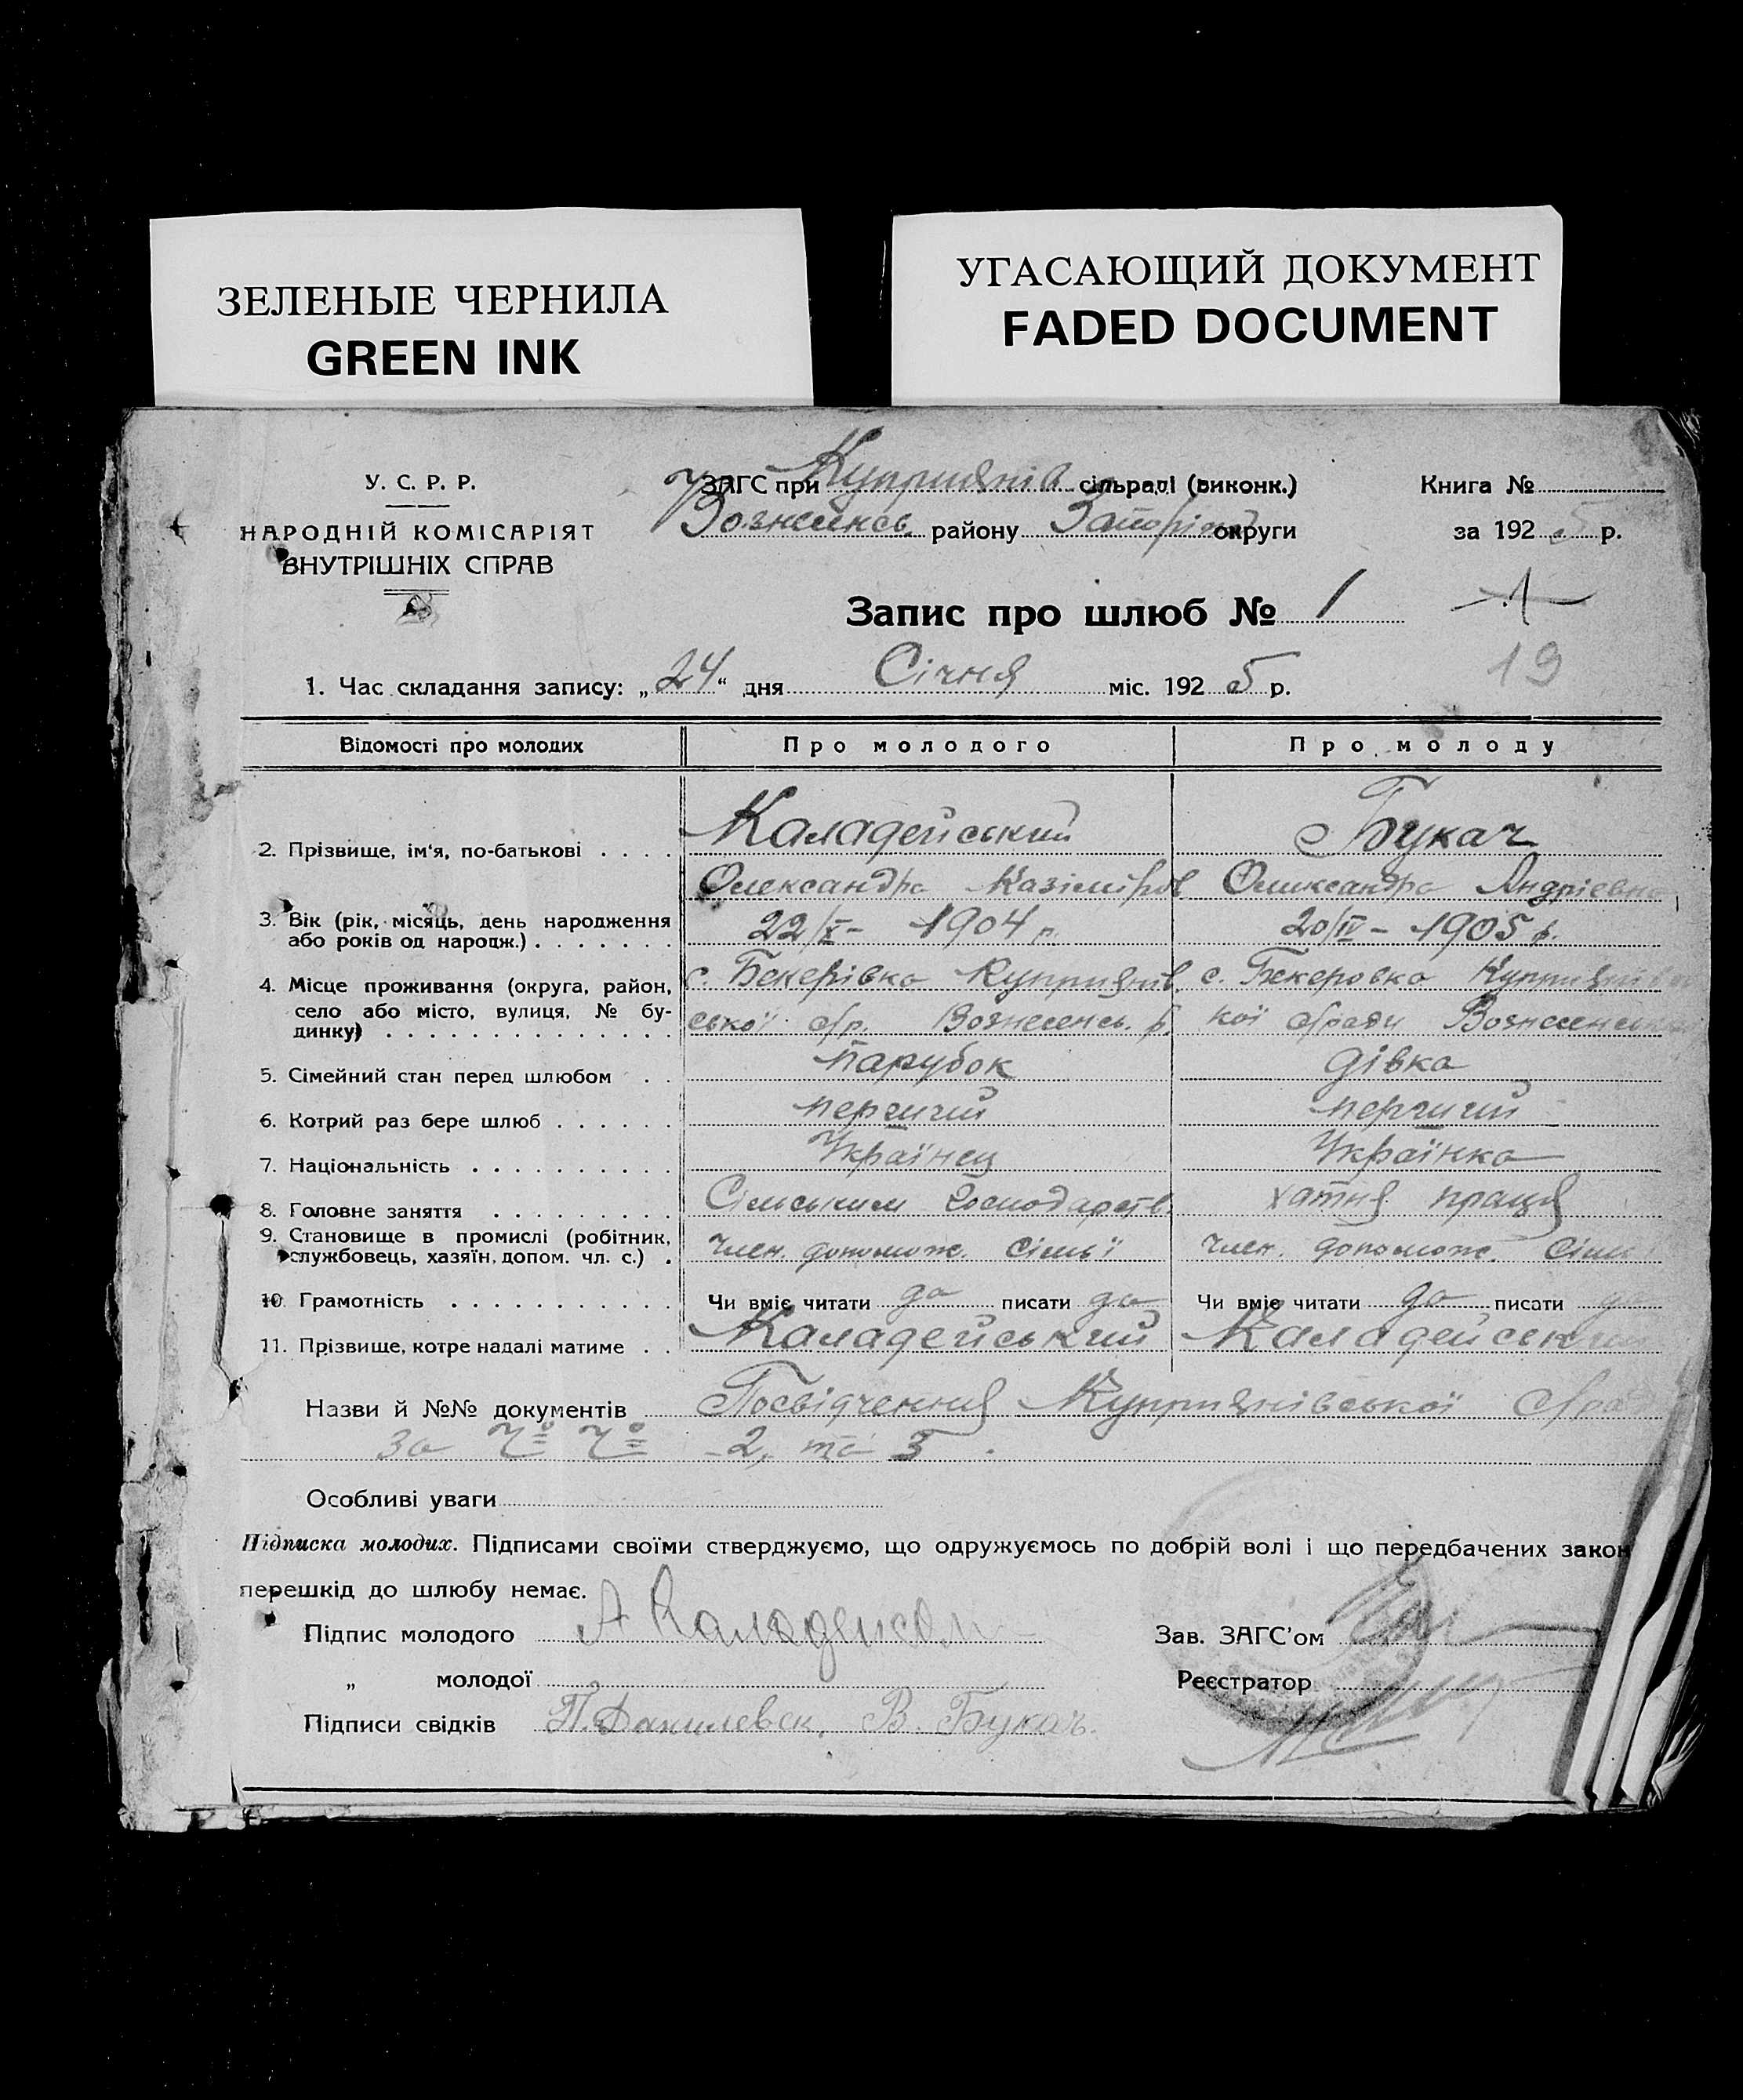 ЗЕЛЕНЫЕ ЧЕРНИЛА
GREEN INK
УГАСАЮЩИЙ ДОКУМЕНТ
FADED DOCUMENT
У. С. Р. Р.
НАРОДНІЙ КОМІСАРІЯТ
ВНУТРІШНІХ СПРАВ
ЗАГС при Куприянів сільраді (виконк.)
Вознесенсь. району Запоріж округи
Книга №
за 1925 р.
Запис про шлюб № 1
1
19
1. Час складання запису: „24“ дня Січня міс. 1925 р.
Відомості про молодих Про молодого Про молоду
2. Прізвище, ім'я, по-батькові . . . . Каладейський Букач
Олександро Казіміров Олександра Андріевна
3. Вік (рік, місяць, день народження 22/X - 1904 р. 20/IV - 1905 р.
або років од народж.) . . . . . . .
4. Місце проживання (округа, район, с. Бекерівка Куприянів. с. Бекеровка Куприянівсь
село або місто, вулиця, № бу- ської с/р. Вознесенсь. р. кої с/ради Вознесенсь
динку) . . . . . . . . . . . . . .
5. Сімейний стан перед шлюбом . . парубок дівка
6. Котрий раз бере шлюб . . . . . . перший перший
7. Національність . . . . . . . . . . Українец Українка
8. Головне заняття . . . . . . . . . Сільським господарств. хатня праця
9. Становище в промислі (робітник, член. допомож. сімьї член. допомож. сімь
службовець, хазяїн, допом. чл. с.) .
10. Грамотність . . . . . . . . . . . Чи вміє читати да писати да Чи вміє читати да писати да
11. Прізвище, котре надалі матиме . . Каладейський Каладейський
Назви й №№ документів Посвідчення Куприянівської с/рад
за №№ 2, та 3.
Особливі уваги
Підписка молодих. Підписами своїми стверджуємо, що одружуємось по добрій волі і що передбачених закон
перешкід до шлюбу немає.
Підпис молодого А Каладейск
Зав. ЗАГС'ом
„ молодої
Реєстратор
Підписи свідків П. Данилевск, В. Букач.